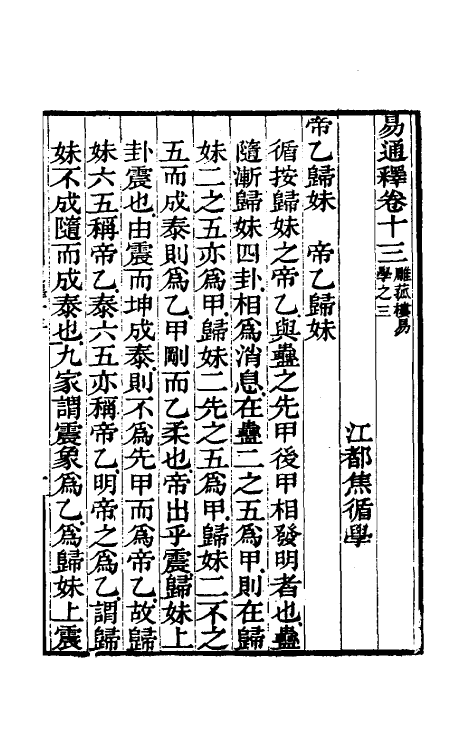 易通釋卷十三 雕菰樓易學之三
江都焦循學
帝乙歸妹　帝乙歸妹
循按歸妹之帝乙與蠱之先甲後甲相發明者也蠱
隨漸歸妹四卦相爲消息在蠱二之五爲甲則在歸
妹二之五亦爲甲歸妹二先之五爲甲歸妹二不之
五而成泰則爲乙甲剛而乙柔也帝出乎震歸妹上
卦震也由震而坤成泰則不爲先甲而爲帝乙故歸
妹六五稱帝乙泰六五亦稱帝乙明帝之爲乙謂歸
妹不成隨而成泰也九家謂震象爲乙爲歸妹上震